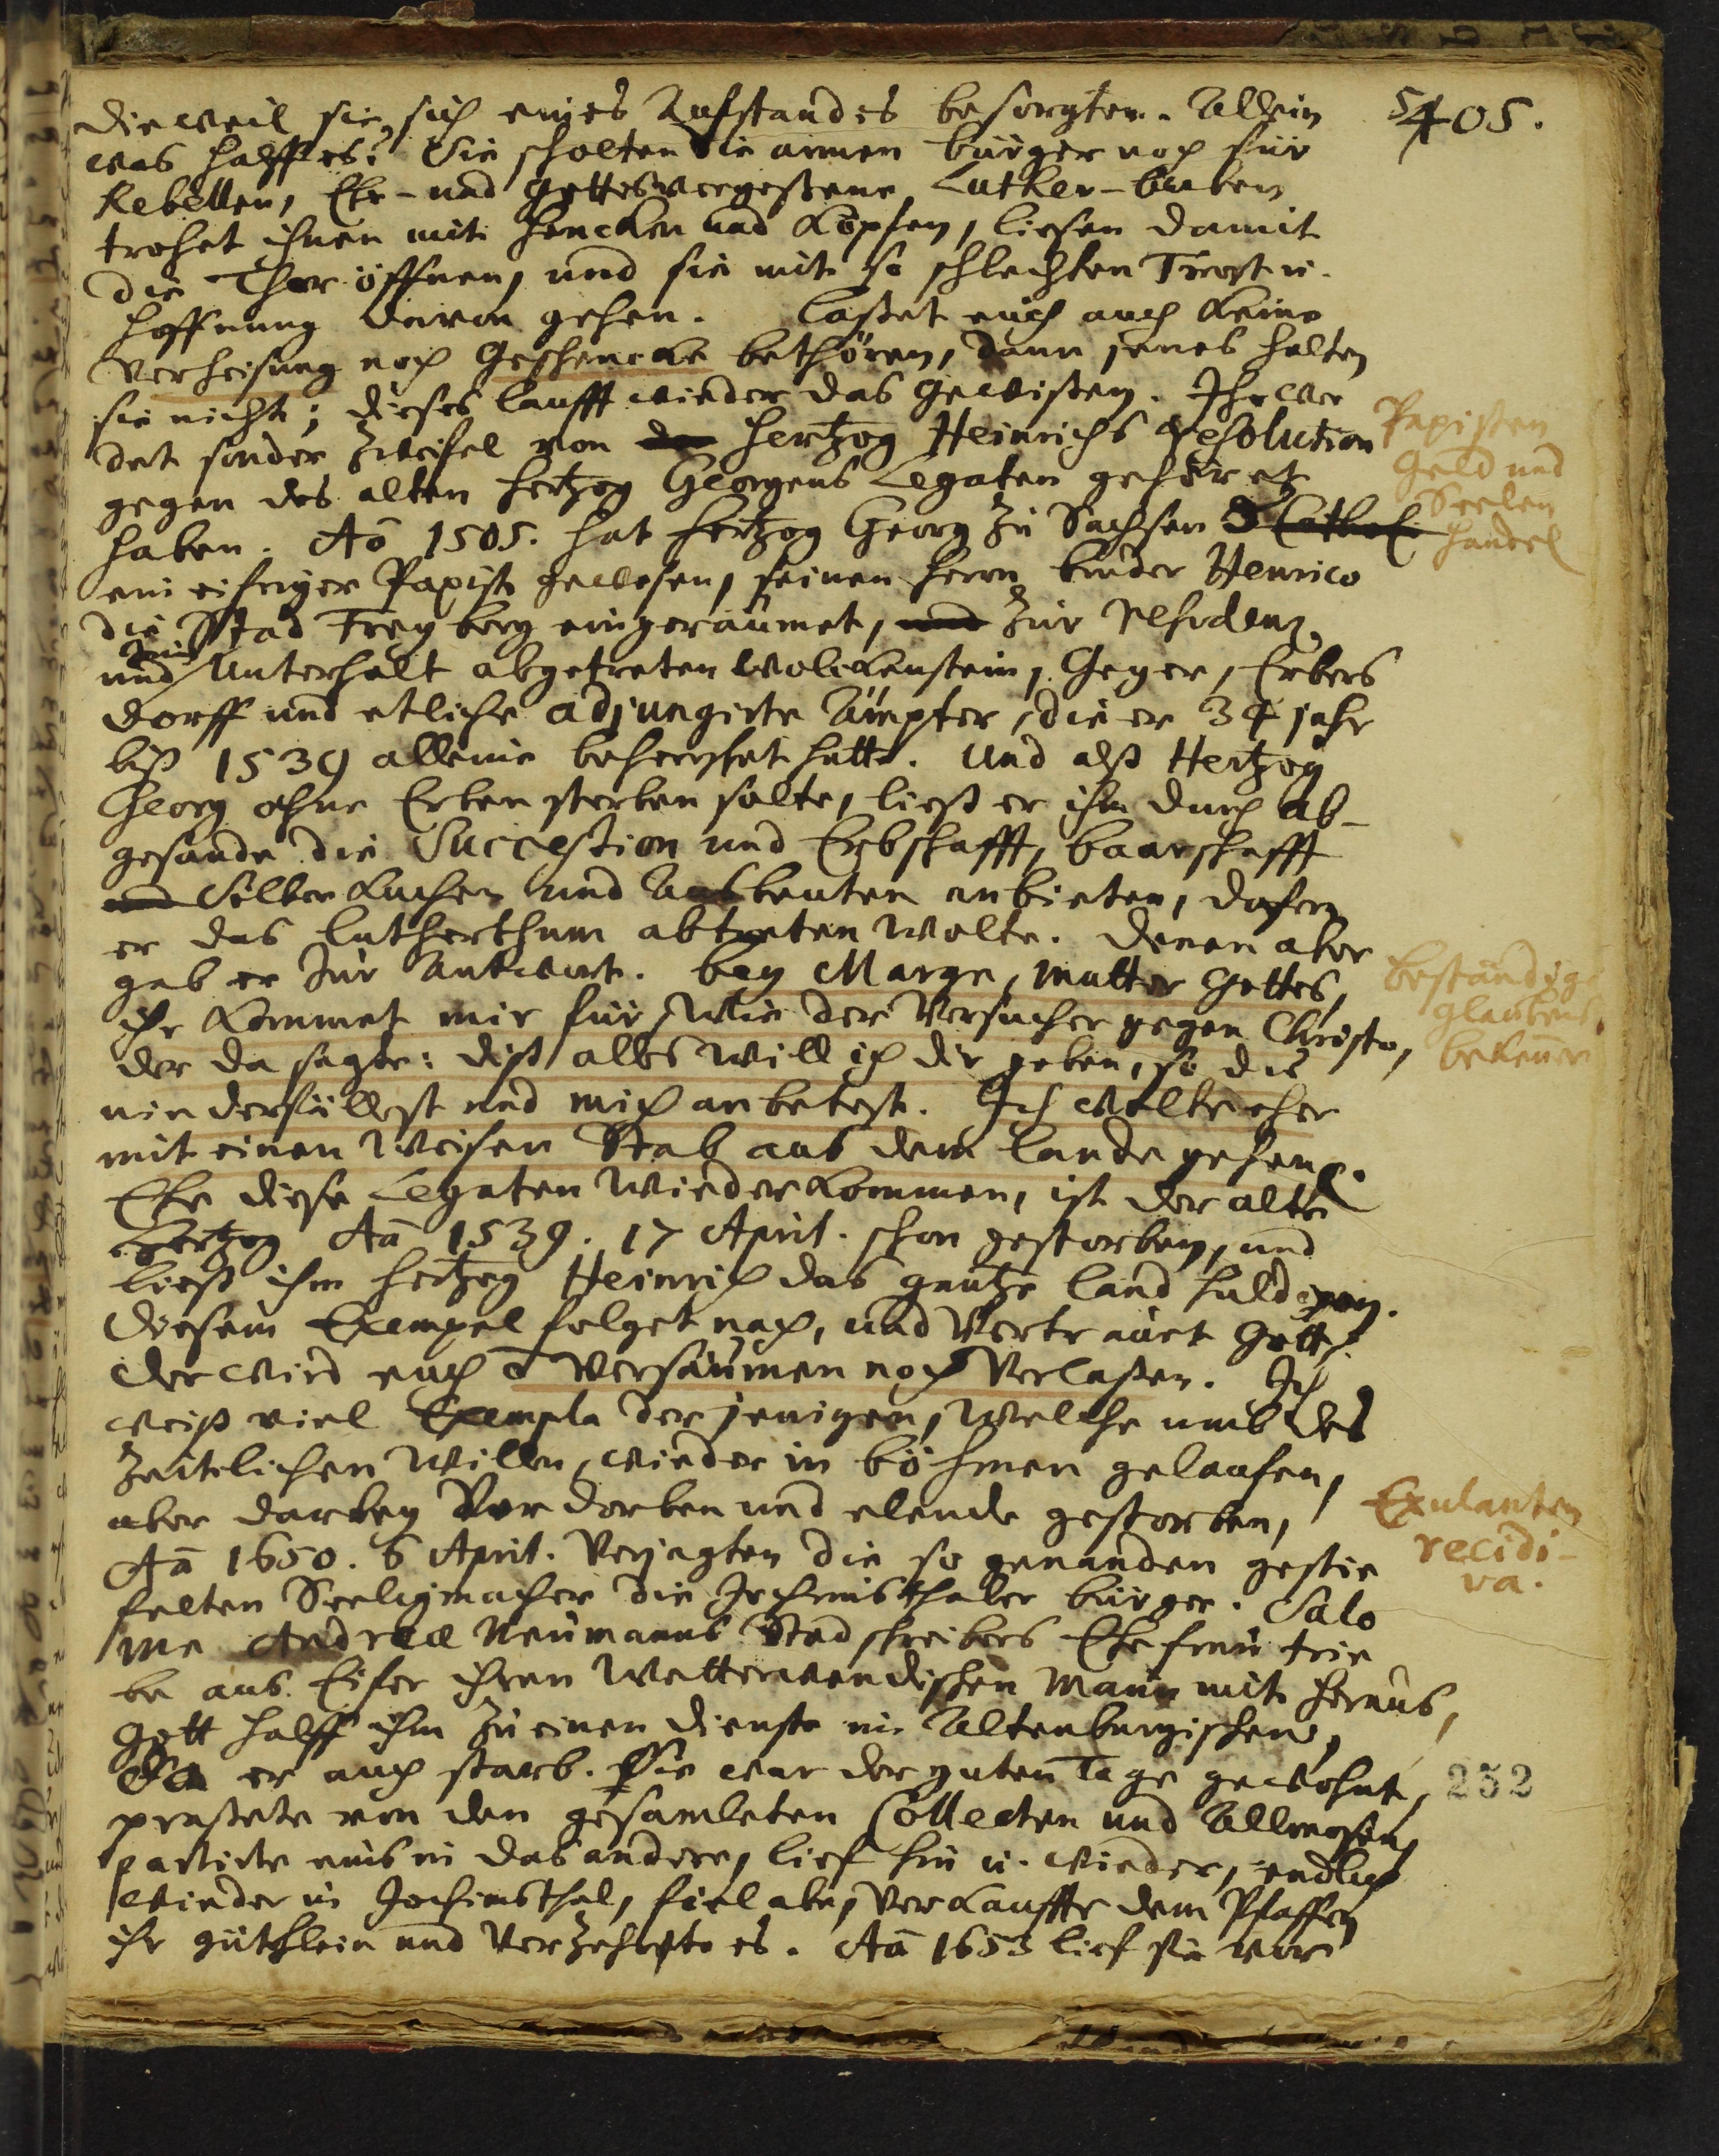 5405.
dieweil sie sich eines Aufstandes besorgten. Allein
was halff es? Sie scholten die armen bürger noch für
Rebellen, Ehr- und Gottesvergeßene Luther-buben
trohet ihnen mit hencken und Köpfen, liesen damit
die Thor öffnen, und sie mit so schlechten Trost u.
hoffnung davon gehen. Laßet euch auch keine
Verheisung noch Geschencke bethören, dann jenes halten
sie nicht; dieses laufft wieder das gewißen. Ihr wer
det sonder Zweifel von Hertzog Heinrichs Resolution
gegen des alten Hertzog Georgens Legaten gehöret
haben. Aō 1505. hat Hertzog Georg zu Sachsen
ein eifriger Papist gewesen, seinen herrn bruder Henrico
die Stad Freyberg eingeräumet, und zur Residenz,
und zum Unterhalt abgetreten Wolckenstein, Geyer, Erbers
dorff und etliche adjungirte Ämpter, die er 34 jahr
biß 1539 alleine beherschet hatte. Und alß Hertzog
Georg ohne Erben sterben solte, ließ er ihm durch ab-
gesande die Succession und Erbschafft, baarschafft
und Silber Kuchen und Ausbeuten anbieten, dafern
er das Lutherthum abtreten wolte. Denen aber
gab er zur Antwort. bey Marge, mutter Gottes,
ihr kommet mir für, wie der Versucher gegen Christo,
der da sagte: diß alles will ich dir geben, so du
niederfällest und mich anbetest. Ich wolte eher
mit einen weisen Stab aus dem lande gehen.
Ehe diese Legaten wieder kommen, ist der alte
Hertzog Aō 1539. 17 April. schon gestorben, und
ließ ihm Hertzog Heinrich das gantze land huldigen.
Diesem Exempel folget nach, und Vertrauet Gott,
der wird euch ō versäumen noch verlaßen. Ich
weiß viel Exempla derjenigen, welche umb des
Zeitlichen willen, wieder in böhmen gelaufen,
aber darbey Verdorben und elende gestorben,
Aō 1650. 6 April. Verjagten die so genanden gestie
felten Seeligmacher die Jochimsthaler bürger. Salo
me Andreae Neumanns Stadschreibers Ehefrau trie
be aus Eifer ihren wetterwendischen Mann mit heraus,
Gott halff ihm zu einen dienste im Altenburgischen,
Da er auch starb. Sie war der guten Tage gewohnt,
praßete von den gesamleten Collecten und Allmosen,
partirte eins in das andere, lief hin u. wieder, endlich
wieder in Jochimsthal, fiel abe, Verkauffte dem Pfaffen
ihr güthlein und Verzehrte es. Aō 1653 lief sie wie
Papisten
Geld und
Seelen
handel
beständige
glaubens
bekenner
Exulanten
recidi-
va.
252